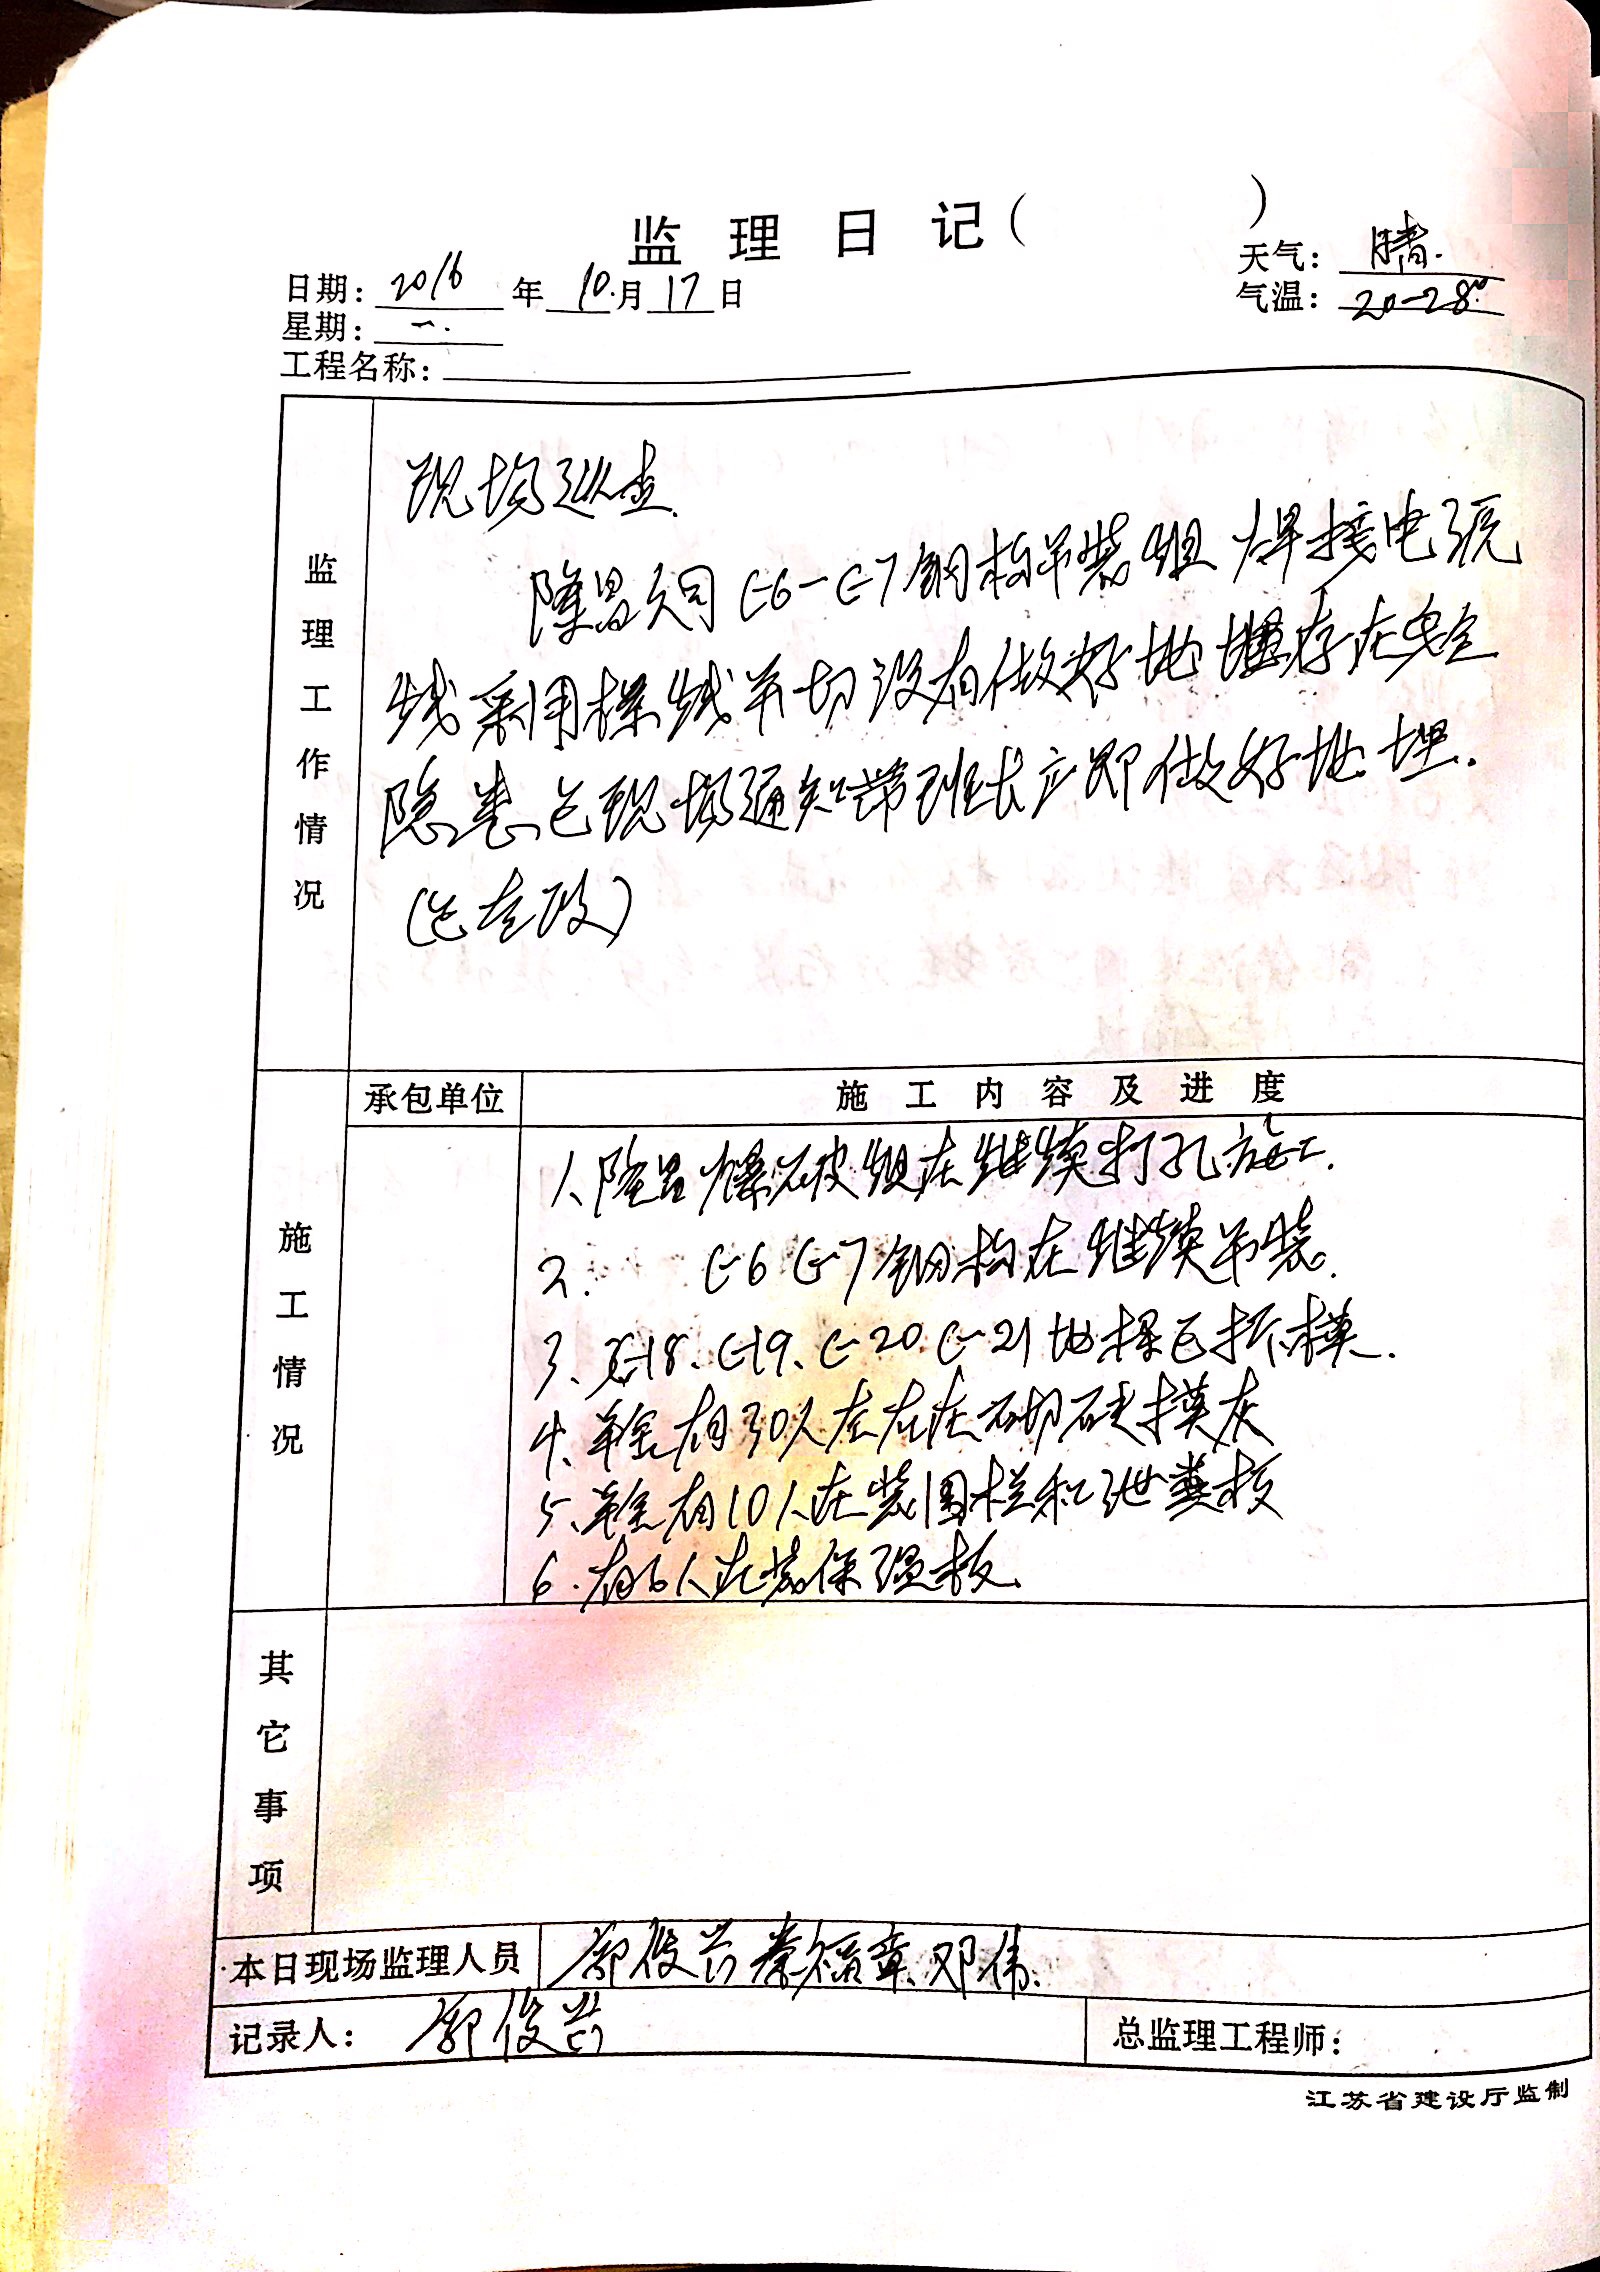 监理日记（ ）
日期：2016年10月17日
天气：晴.
星期：一.
气温：20-28°
工程名称：
监理工作情况
现场巡查.
隆昌公司C-6-C-7钢构吊装组焊接电源
线采用裸线吊切没有做好地埋存在安全
隐患已现场通知带班长立即做好地埋.
(已左改)
承包单位
施工内容及进度
施工情况
1、隆昌爆破组在继续打孔施工.
2. C-6 C-7钢构在继续吊装.
3、C-18、C-19、C-20 C-21地梁已拆模.
4、有30人左右在砌砖摸灰
5、有10人在装围栏和泄粪板
6.有6人在装保温板.
其它事项
本日现场监理人员 郭俊芳 秦福章、邓伟.
记录人：郭俊芳
总监理工程师：
江苏省建设厅监制